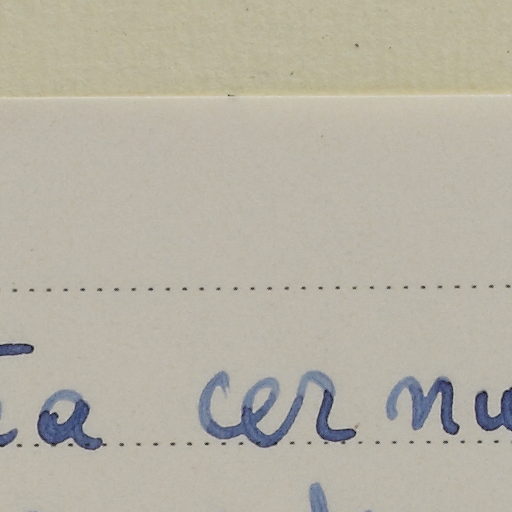 ta cernu